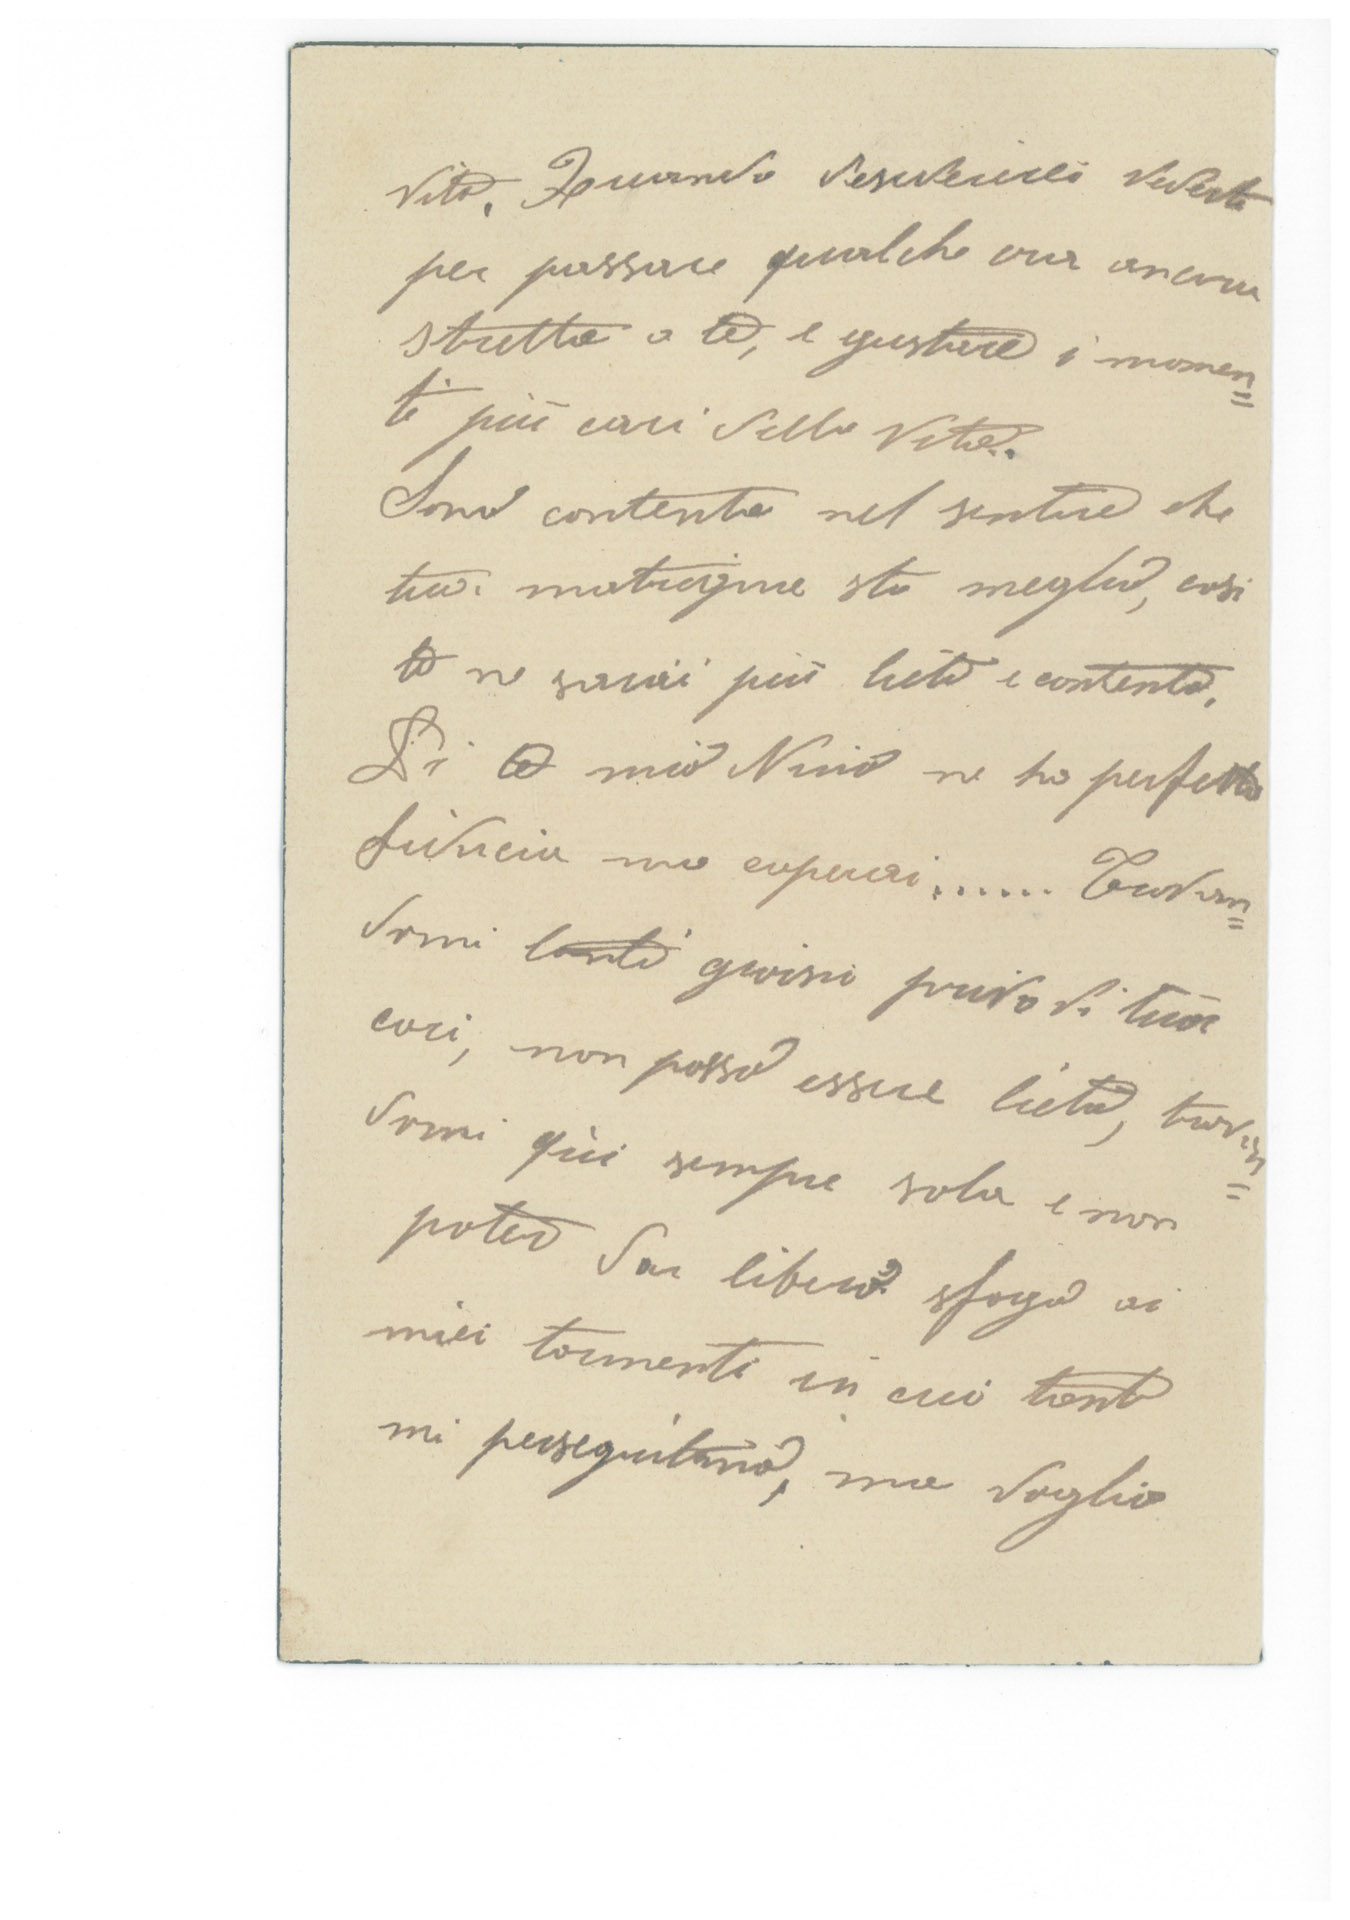 vita. Quando desidererei vederti
per passare qualche ora ancora
stretta a te, e gustare i momen=
ti più cari della vita.
Sono contenta nel sentire che
tua matrigna sta meglio, così
te ne sarai più lieto e contento.
Di te mio Nino ne ho perfetta
fiducia ma caperai...... Trovan=
domi tanti giorni priva di tuoi
cari, non posso essere lieta, trovan=
domi qui sempre sola e non
poter dar libero sfogo ai
miei tormenti in cui tanto
mi perseguitano, ma voglio